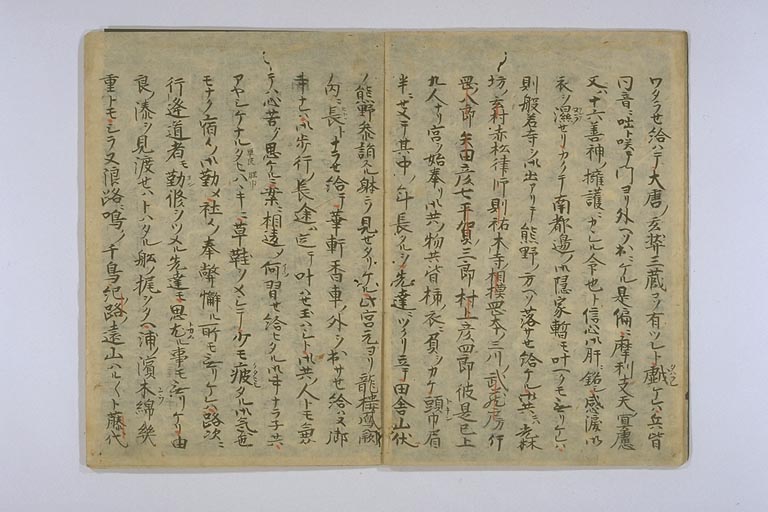 ワタラセ給ハテ大唐ノ玄弉三蔵コソ有ツレト戯ケレハ兵皆
同音ニ咄ト咲テ門ヨリ外ヘソ出ニケル是偏ニ摩利支天ノ冥慮
又ハ十六善神ノ擁護ニヨル命也ト信心肝ニ銘シ感涙御
衣ヲ湿セリカクテ南都邊ノ御隠家暫モ叶カタケレハ
則般若寺ヲ御出アリテ熊野ノ方ヘソ落サセ給ケル御共ニハ光林
坊玄村赤松律師則祐木寺相摸岡本三川房武蔵房
岡八郎矢田彦七平賀三郎村上彦四郎彼是已上
九人ナリ宮ヲ始奉リ御共ノ物共皆柿衣ニ負ヲカケ頭巾眉
半ニセメテ其中ニ年長タルヲ先達ニツクリ立テ田舎山伏
ノ熊野参詣スル躰ニ見セタリケル此宮元ヨリ龍樓鳳闕
ノ内ニ長トナラセ給テ華軒香車ノ外ヲ出サセ給ハヌ御
事ナレハ御歩行ノ長途ハ定テ叶ハセ玉ハシト御共ノ人トモ兼
テハ心苦ク思ケルニ案ニ相違シテ何習セ給ヒタル御事ナラネ共
アヤシケナルタヒハヽキニ草鞋ヲメシテ少モ疲タル御気色
モナク宿々ノ御勤メ社々ノ奉幣懈ル所モ無リケレハ路次ニ
行逢道者モ勤修ヲツメル先達モ思尤ル事モ無リケリ由
良湊ヲ見渡セハトハタル舩ノ梶ヲタヘ浦ノ濱木綿幾
重トモシラヌ浪路ニ鳴ク千鳥紀路ノ遠山ハル〱ト藤代